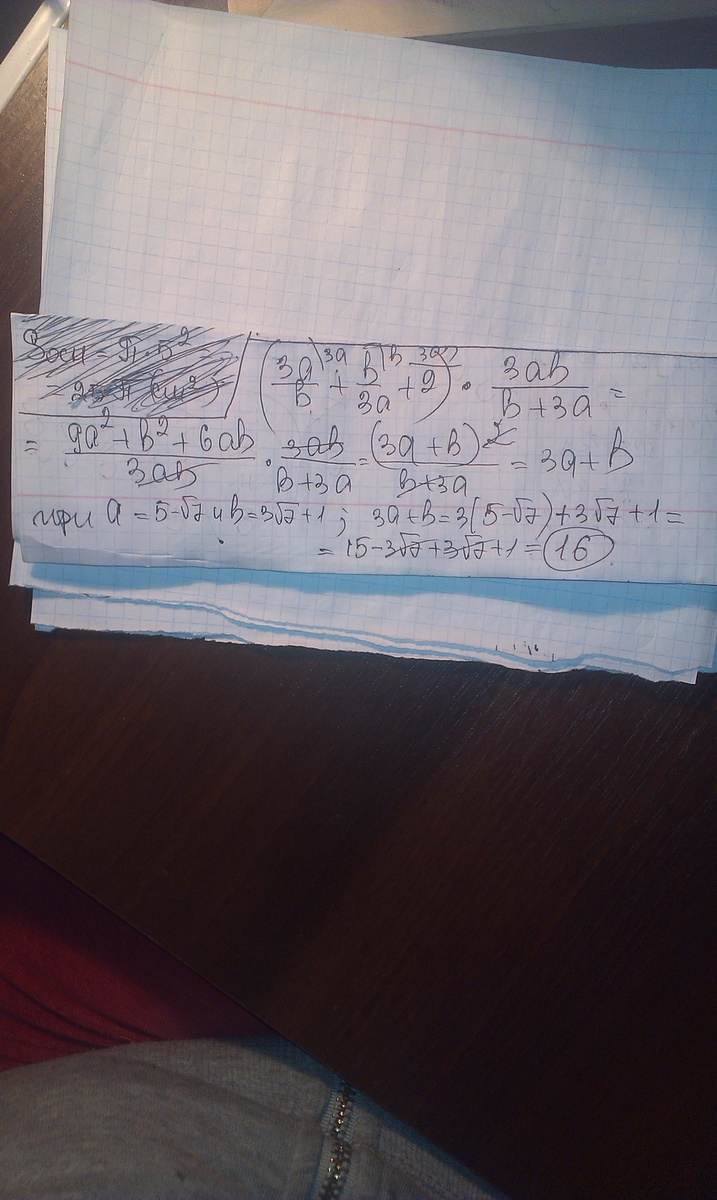 Sосн = π·5² =
= 25π (см²)
(3a/b \3a + b/3a \b + 2 \3ab) · 3ab/(b+3a) =
= (9a² + b² + 6ab)/3ab · 3ab/(b+3a) = (3a+b)²/(b+3a) = 3a+b
при a = 5-√7 и b = 3√7+1; 3a+b = 3(5-√7)+3√7+1 =
= 15-3√7+3√7+1 = 16